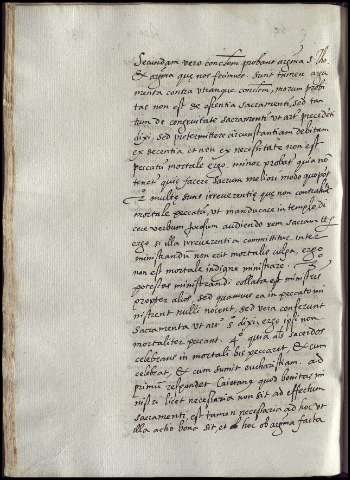 Secundam vero conclem probant argumta s. Tho.
& argta que nos fecimus. Sunt tamen argu
menta contra utranque conclem, morum probi
tas non est de essentia sacramenti, sed tan
tum de congruitate sacramenti ut art. precedenti
dixi, sed pretermittere circunstantiam debitam
ex decentia et non ex necessitate non est
peccatu mortale ergo. minor probat quia no
tenet quis facere sacrum meliori modo quo pot
multe sunt irreverentie que non contrahunt
mortale peccatu, ut manducare in templo, di
cere verbum jocosum audiendo rem sacram
ergo si illa irreverentia committitur inter
ministrandu non erit mortalis culpa, ergo
non est mortale indigne ministrare.
potestas ministrandi collata est ministris
propter alios, sed quamvis ea in peccato mi
nistrent nulli nocent, sed vera conferunt
sacramenta ut art. 5 dixi, ergo ipsi non
mortaliter peccant. 4o quia als sacerdos
celebrans in mortali bis peccaret, & cum
celebrat, & cum sumit eucharistiam. ad
primu respondet Caietang quod bonitas mi
nistri licet necessaria non sit ad effectum
sacramenti, est tamen necessaria ad hoc ut
illa actio bona sit et hoc ob argta facta